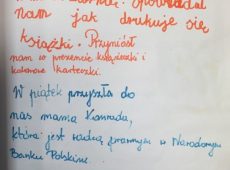 nam jak drukuje się
książki. Przyniósł
nam w prezencie książeczki i
kolorowe karteczki.
W piątek przyszła do
nas mama Konrada,
która jest radcą prawnym w Narodowym
Banku Polskim.